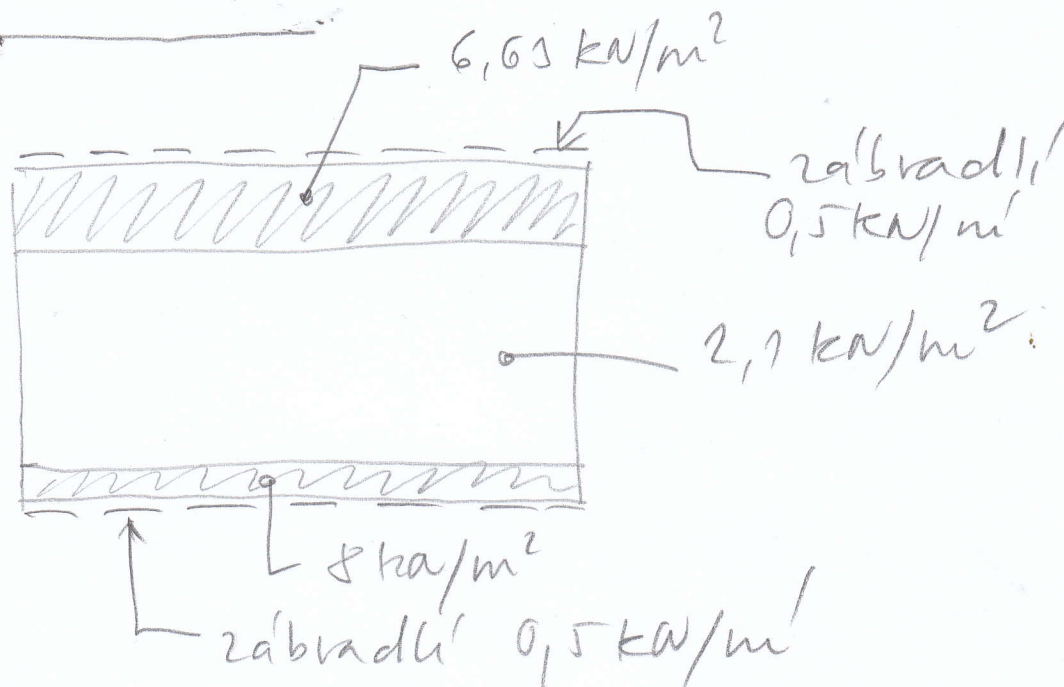 6,63 kN/m²
zábradlí
0,5 kN/m'
2,1 kN/m²
8 kN/m²
zábradlí 0,5 kN/m'